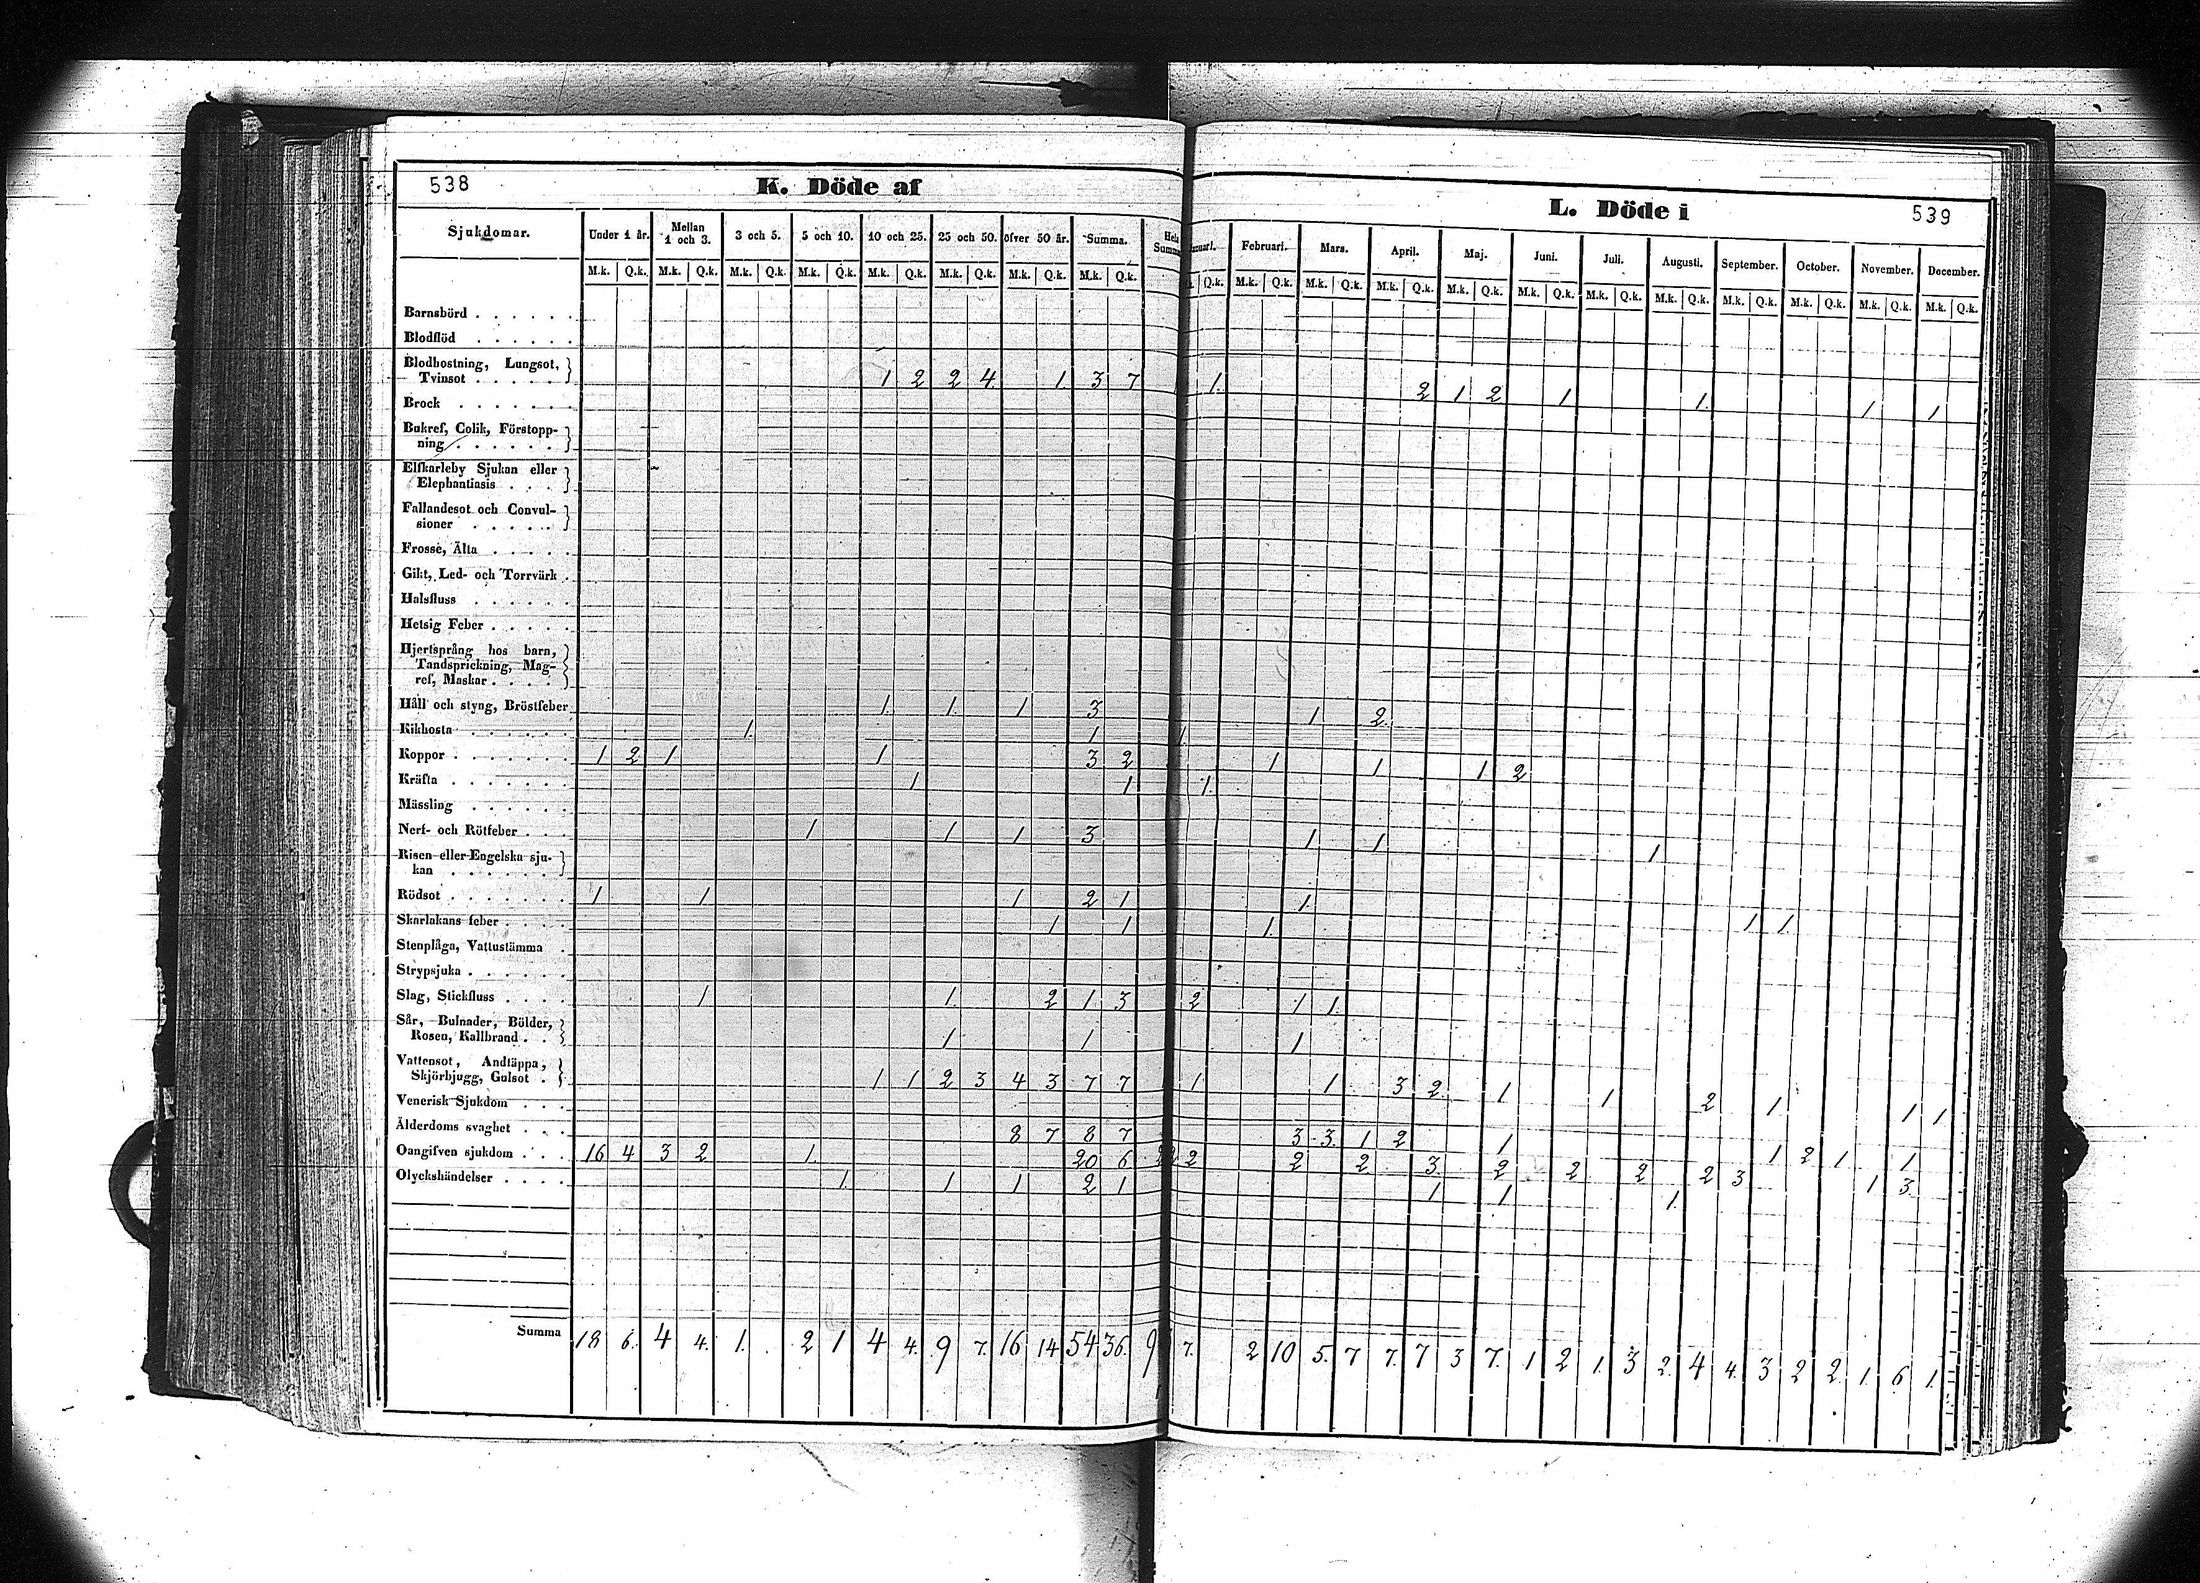 538
K. Döde af
Sjukdomar. Under 1 år. Mellan 1 och 3. 3 och 5. 5 och 10. 10 och 25. 25 och 50. öfver 50 år. Summa. Hela Summa
M.k. Q.k. M.k. Q.k. M.k. Q.k. M.k. Q.k. M.k. Q.k. M.k. Q.k. M.k. Q.k. M.k. Q.k.
Barnsbörd
Blodflöd
Blodhostning, Lungsot,
Tvinsot 1 2 2 4 1 3 7
Brock
Bukref, Colik, Förstopp-
ning
Elfkarleby Sjukan eller
Elephantiasis
Fallandesot och Convul-
sioner
Frosse, Älta
Gikt, Led- och Torrvärk
Halsfluss
Hetsig Feber
Hjertsprång hos barn,
Tandsprickning, Mag-
ref, Maskar
Håll och styng, Bröstfeber 1 1 1 3
Kikhosta 1 1
Koppor 1 2 1 1 3 2
Kräfta 1 1
Mässling
Nerf- och Rötfeber 1 1 1 3
Risen eller Engelska sju-
kan
Rödsot 1 1 1 2 1
Skarlakans feber 1 1
Stenplåga, Vattustämma
Strypsjuka
Slag, Stickfluss 1 1 2 1 3
Sår, Bulnader, Bölder,
Rosen, Kallbrand 1 1
Vattensot, Andtäppa,
Skjörbjugg, Gulsot 1 1 2 3 4 3 7 7
Venerisk Sjukdom
Ålderdoms svaghet 8 7 8 7
Oangifven sjukdom 16 4 3 2 1 20 6
Olyckshändelser 1 1 1 2 1
Summa 18 6. 4 4. 1. 2 1 4 4. 9 7. 16 14 54 36. 9
L. Döde i
539
Februari. Mars. April. Maj. Juni. Juli. Augusti. September. October. November. December.
Q.k. M.k. Q.k. M.k. Q.k. M.k. Q.k. M.k. Q.k. M.k. Q.k. M.k. Q.k. M.k. Q.k. M.k. Q.k. M.k. Q.k. M.k. Q.k. M.k. Q.k.
1 2 1 2 1 1 1 1
1 2
1
1 1 1 2
1
1 1 1
1
1 1 1
2 1 1
1
1 1 3 2 1 1 2 1 1 1
3 3 1 2 1 1 2 1 1
2 2 2 3 2 2 2 2 3 1 3
1 1 1
7. 2 10 5. 7 7. 7 3 7. 1 2 1. 3 2. 4 4. 3 2 2. 1. 6 1.